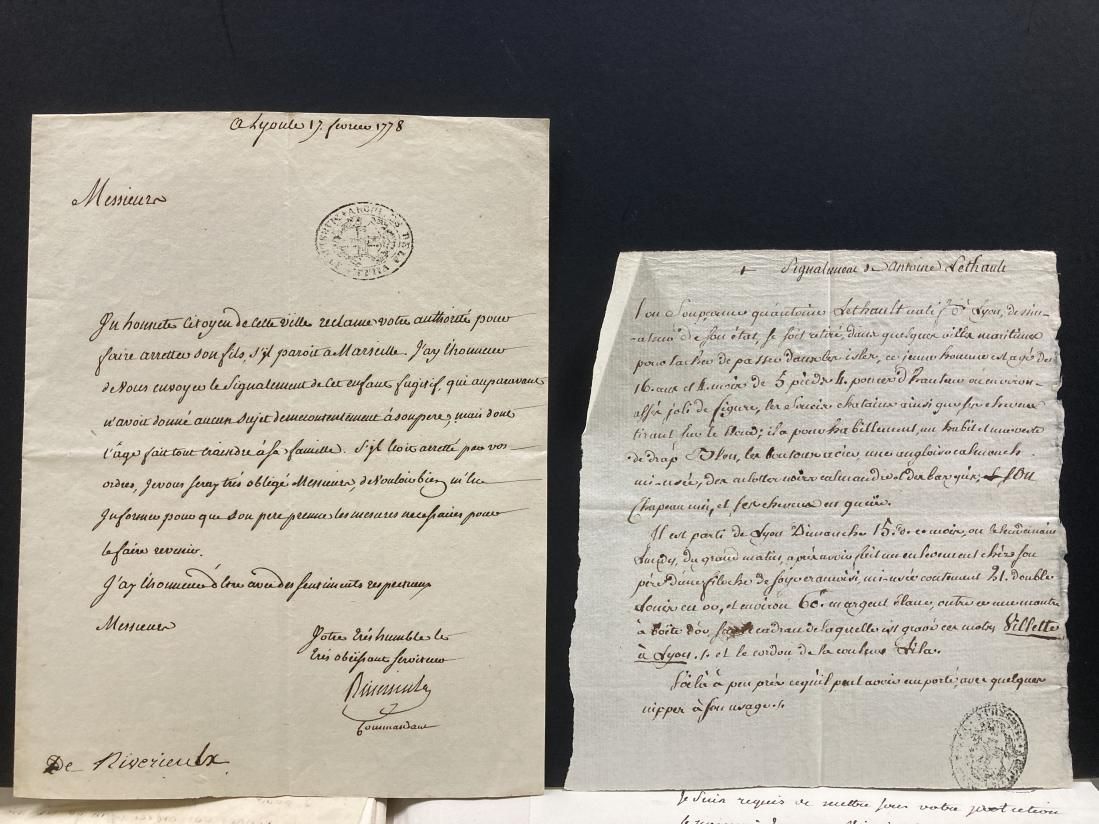 A Lyon le 17. fevrier 1778
Messieurs
ARCHIVES DE LA VILLE
Un honnete Citoyen de cette ville reclame votre authorité pour
faire arretter son fils, s'il paroit à Marseille. J'ay l'honneur
de vous envoyer le Signalement de cet enfant fugitif, qui auparavant
n'avoit donné aucun sujet de mecontentement à son pere, mais dont
l'âge fait tout craindre à sa famille. S'il étoit arretté par vos
ordres, je vous seray trés obligé Messieurs, de vouloir bien m'en
Informer pour que son pere prenne les mesures necessaires pour
le faire revenir.
J'ay l'honneur d'être avec des sentiments respectueux
Messieurs
Votre trés humble et
trés obéissant serviteur
Riverieulx
Commandant
De Riverieulx
Signalement de Antoine Lethault
l'on Soupçonne qu'antoine Lethault natif de Lyon, dessinateur
de son état, se soit retiré, dans quelque ville maritime
pour tacher de passer dans les isles, ce jeune homme est agé de
16. ans et 4. mois de 5 pieds 4. pouces d'hauteur ou environ
assés joli de figure, les Sourcis chatains ainsi que ses cheveux
tirant sur le blond; il a pour habillement, un habit et une veste
de drap Bleu, les boutons acier une angloise
mi-usée, des culottes noires calmande et des bas gris, son
chapeau uni, et ses cheveux en queüe.
Il est parti de Lyon Dimanche 15.e de ce mois, ou le lendemain
Lundy, du grand matin, après avoir fait un enlevement chés son
pére d'une filoche de soye cramoisi, mi-usée contenant 21. double
Louis en or, et environ 60.# en argent blanc, outre ce une montre
à boëte d'or, cadran de laquelle est gravé ces mots Villette
à Lyon. et le cordon de la couleur Lilas.
Voilà à peu prés ce qu'il peut avoir emporté, avec quelques
nippes à son usage.
je suis requis de mettre sous votre protection